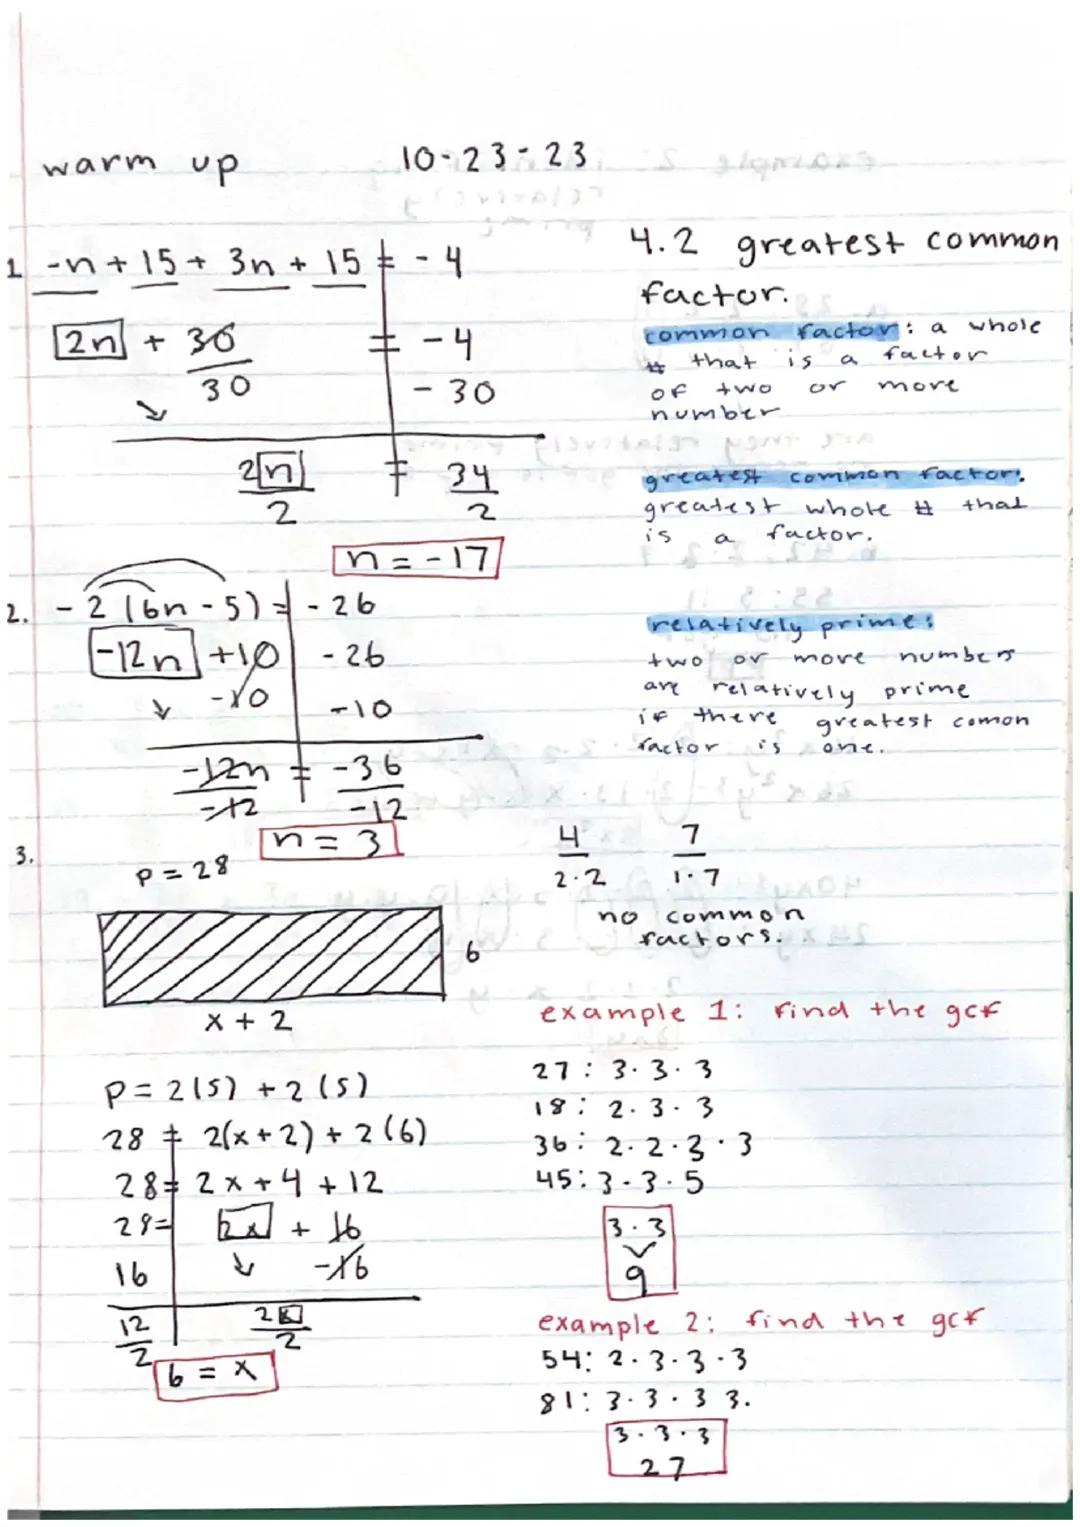 warm up 10-23-23
1 -n + 15 + 3n + 15 = -4
2n + 30 = -4
30 - 30
2n = 34
2 2
n = -17
2. -2(6n - 5) = -26
-12n + 10 -26
-10 -10
-12n = -36
-12 -12
n = 3
3.
p = 28
6
x + 2
p = 2(s) + 2(s)
28 = 2(x+2) + 2(6)
28 = 2x + 4 + 12
28 = 2x + 16
16 -16
12 2x
2 2
6 = x
4.2 greatest common
factor.
common factor: a whole
# that is a factor
of two or more
number
greatest common factor:
greatest whole # that
is a factor.
relatively prime:
two or more numbers
are relatively prime
if there greatest comon
factor is one.
4 7
2·2 1·7
no common
factors.
example 1: find the gcf
27: 3·3·3
18: 2·3·3
36: 2·2·3·3
45: 3·3·5
3·3
9
example 2: find the gcf
54: 2·3·3·3
81: 3·3·3 3.
3·3·3
27